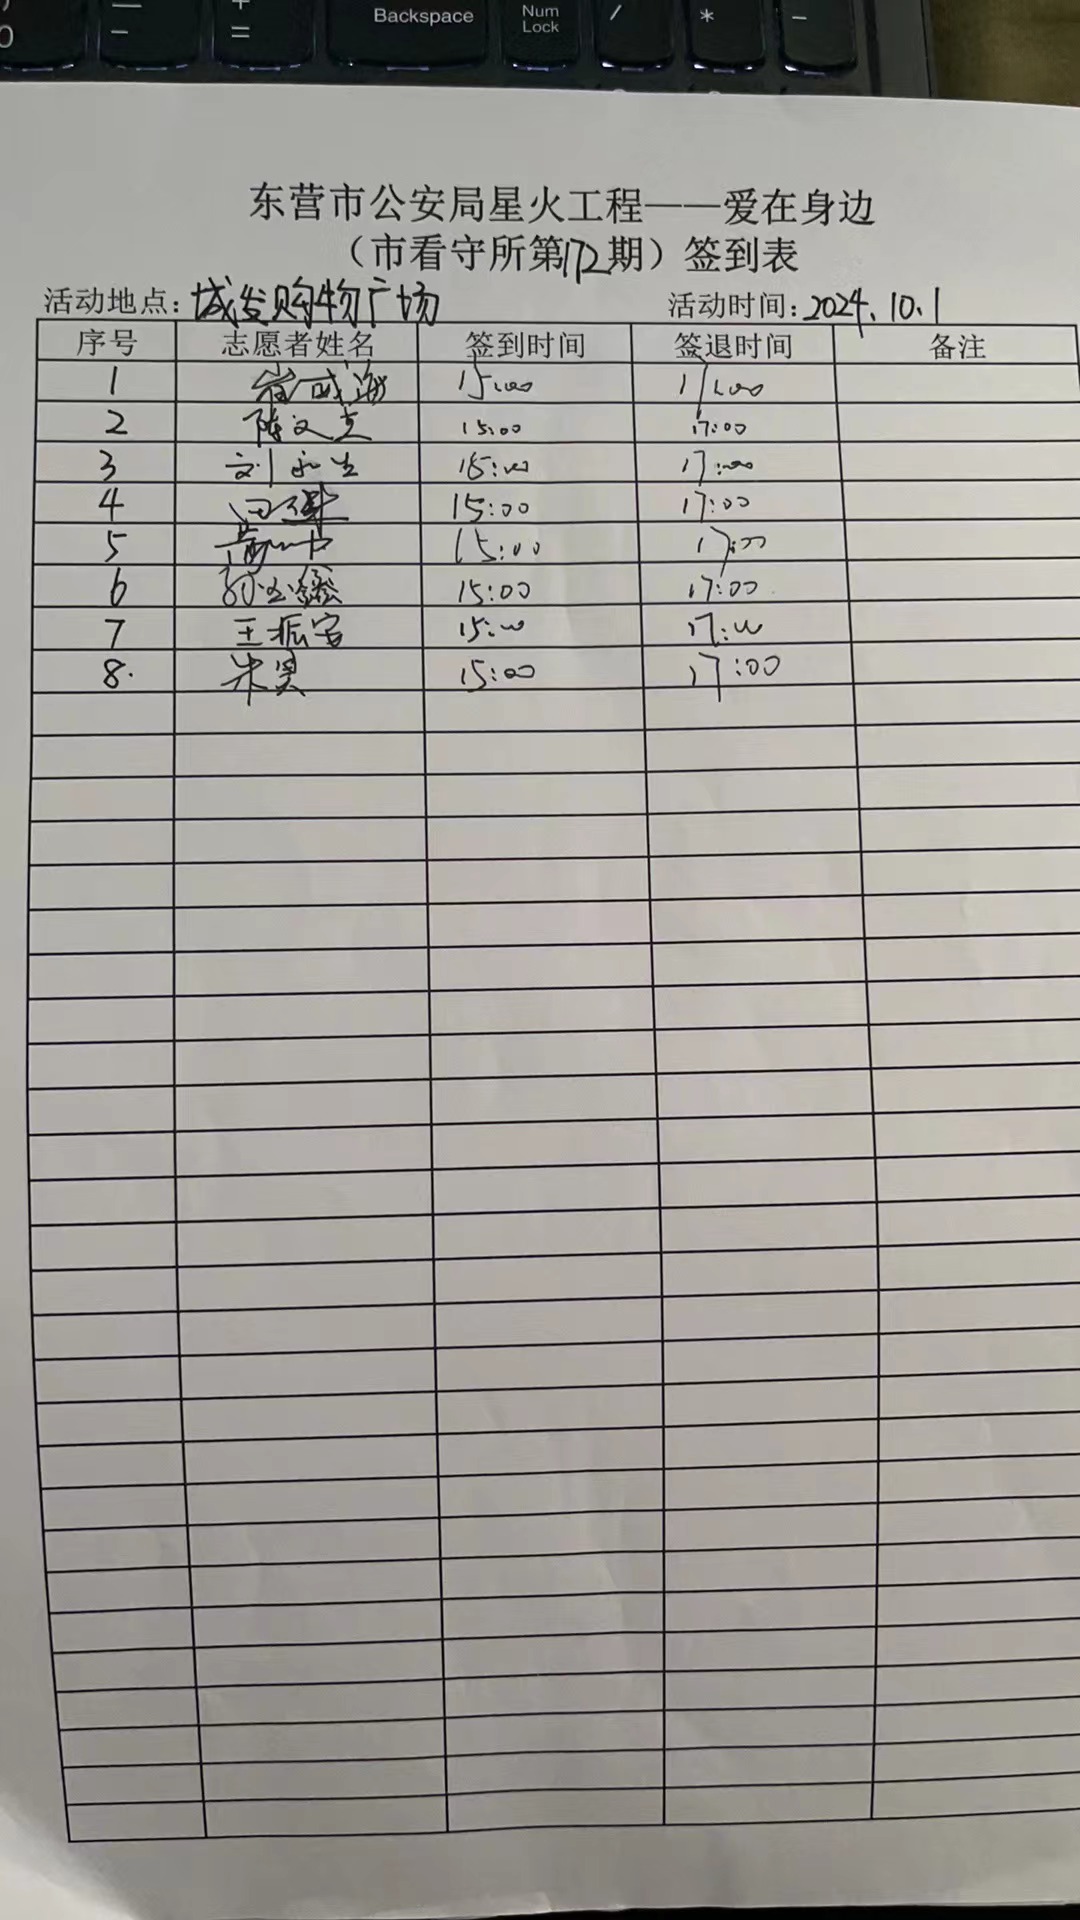 Backspace
Num
Lock
/
*
-
0
-
=
东营市公安局星火工程——爱在身边
（市看守所第172期）签到表
活动地点：城发购物广场 活动时间：2024.10.1
序号 志愿者姓名 签到时间 签退时间 备注
1 崔成海 15:00 17:00
2 陈文 15:00 17:00
3 刘永生 15:00 17:00
4 田 15:00 17:00
5 15:00 17:00
6 孙 15:00 17:00
7 王振 15:00 17:00
8. 朱昊 15:00 17:00